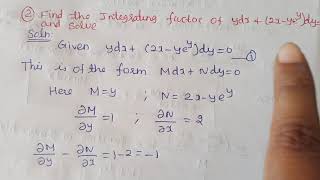 ② Find the Integrating factor of ydx + (2x-ye^y)dy=
and solve
Soln:
Given ydx + (2x-ye^y)dy=0 —①
This is of the form Mdx + Ndy=0
Here M=y ; N = 2x-ye^y
∂M/∂y = 1 ; ∂N/∂x = 2
∂M/∂y - ∂N/∂x = 1-2 = -1